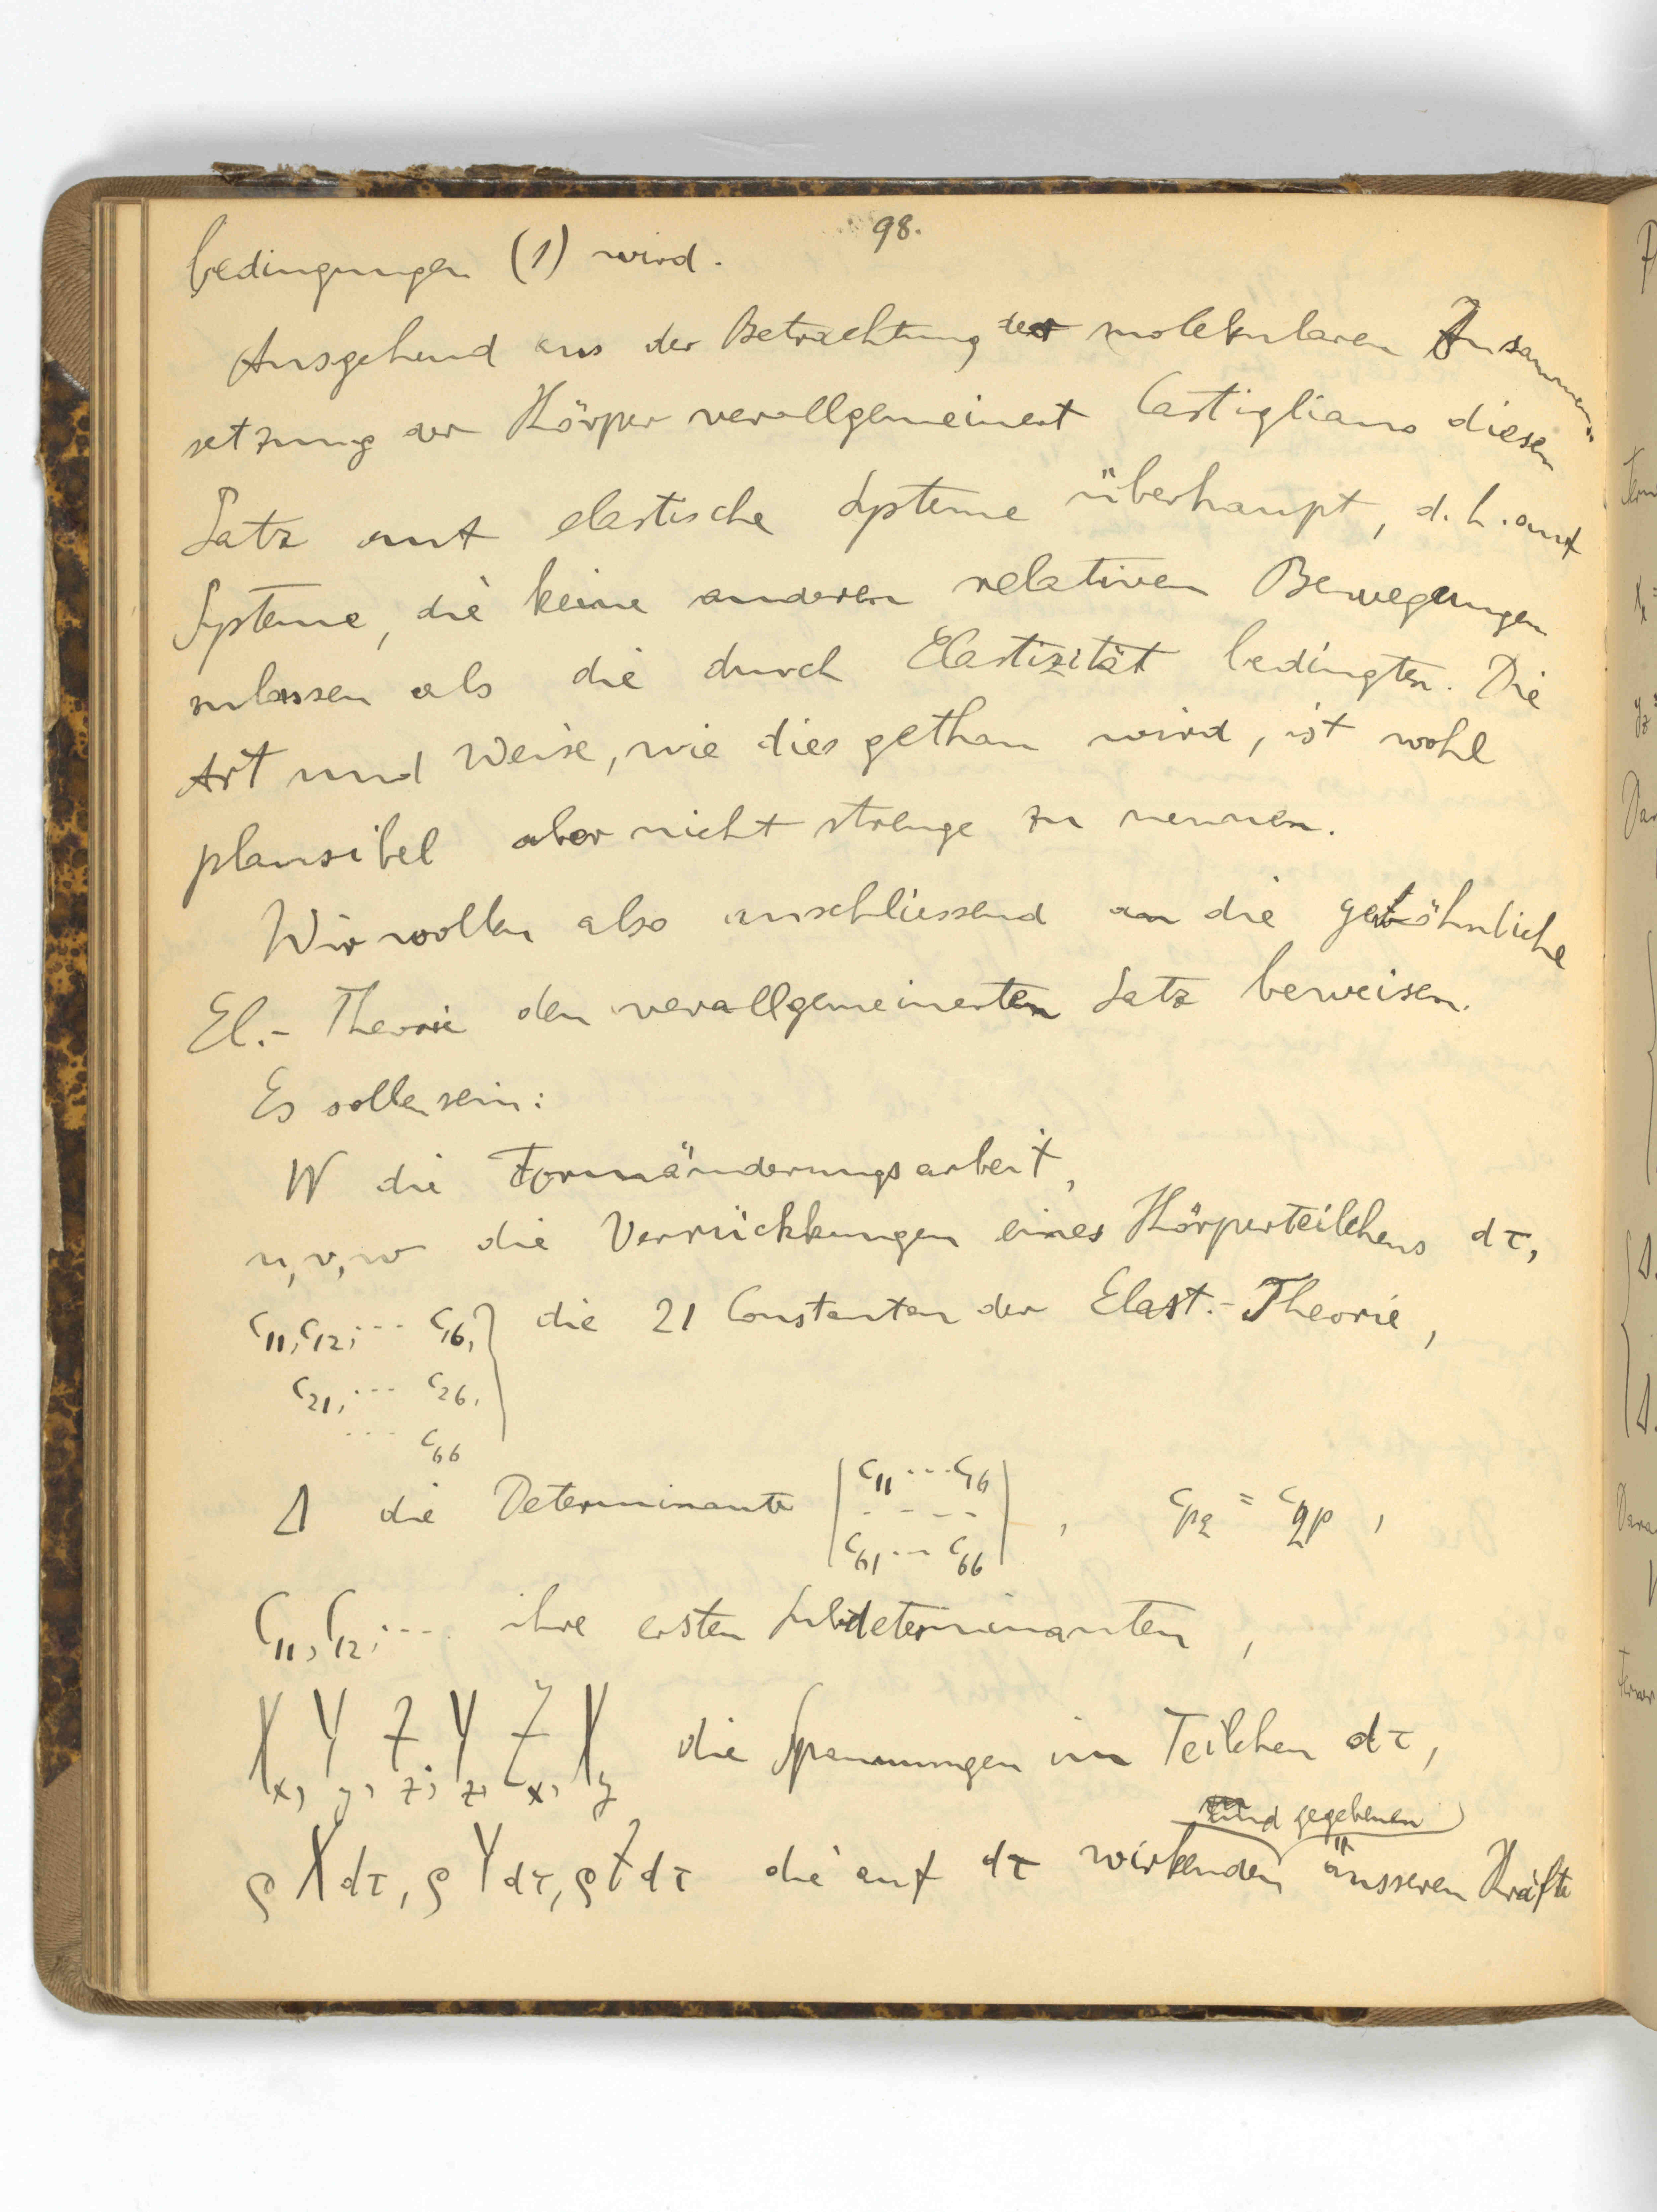 98.
bedingungen (1) wird.
Ausgehend aus der Betrachtung der molekularen Zusammen-
setzung der Körper verallgemeinert Castigliano diesen
Satz auf elastische Systeme überhaupt, d.h. auf
Systeme, die keine anderen relativen Bewegungen
zulassen als die durch Elastizität bedingten. Die
Art und Weise, wie dies gethan wird, ist wohl
plausibel aber nicht strenge zu nennen.
Wir wollen also anschliessend an die gewöhnliche
El.- Theorie den verallgemeinerten Satz beweisen.
Es sollen sein:
W die Formänderungsarbeit,
u, v, w die Verrückkungen eines Körperteilchens dτ,
c11, c12, ... c16, } die 21 Constanten der Elast.-Theorie,
c21, ... c26,
... c66
Δ die Determinante | c11 ... c16 | , cpq = cqp ,
- - - -
c61 ... c66
C11, C12, ... ihre ersten Subdeterminanten,
Xx, Yy, Zz, Yz, Zx, Xy die Spannungen im Teilchen dτ,
und gegebenen
ρXdτ, ρYdτ, ρZdτ die auf dτ wirkenden äusseren Kräfte